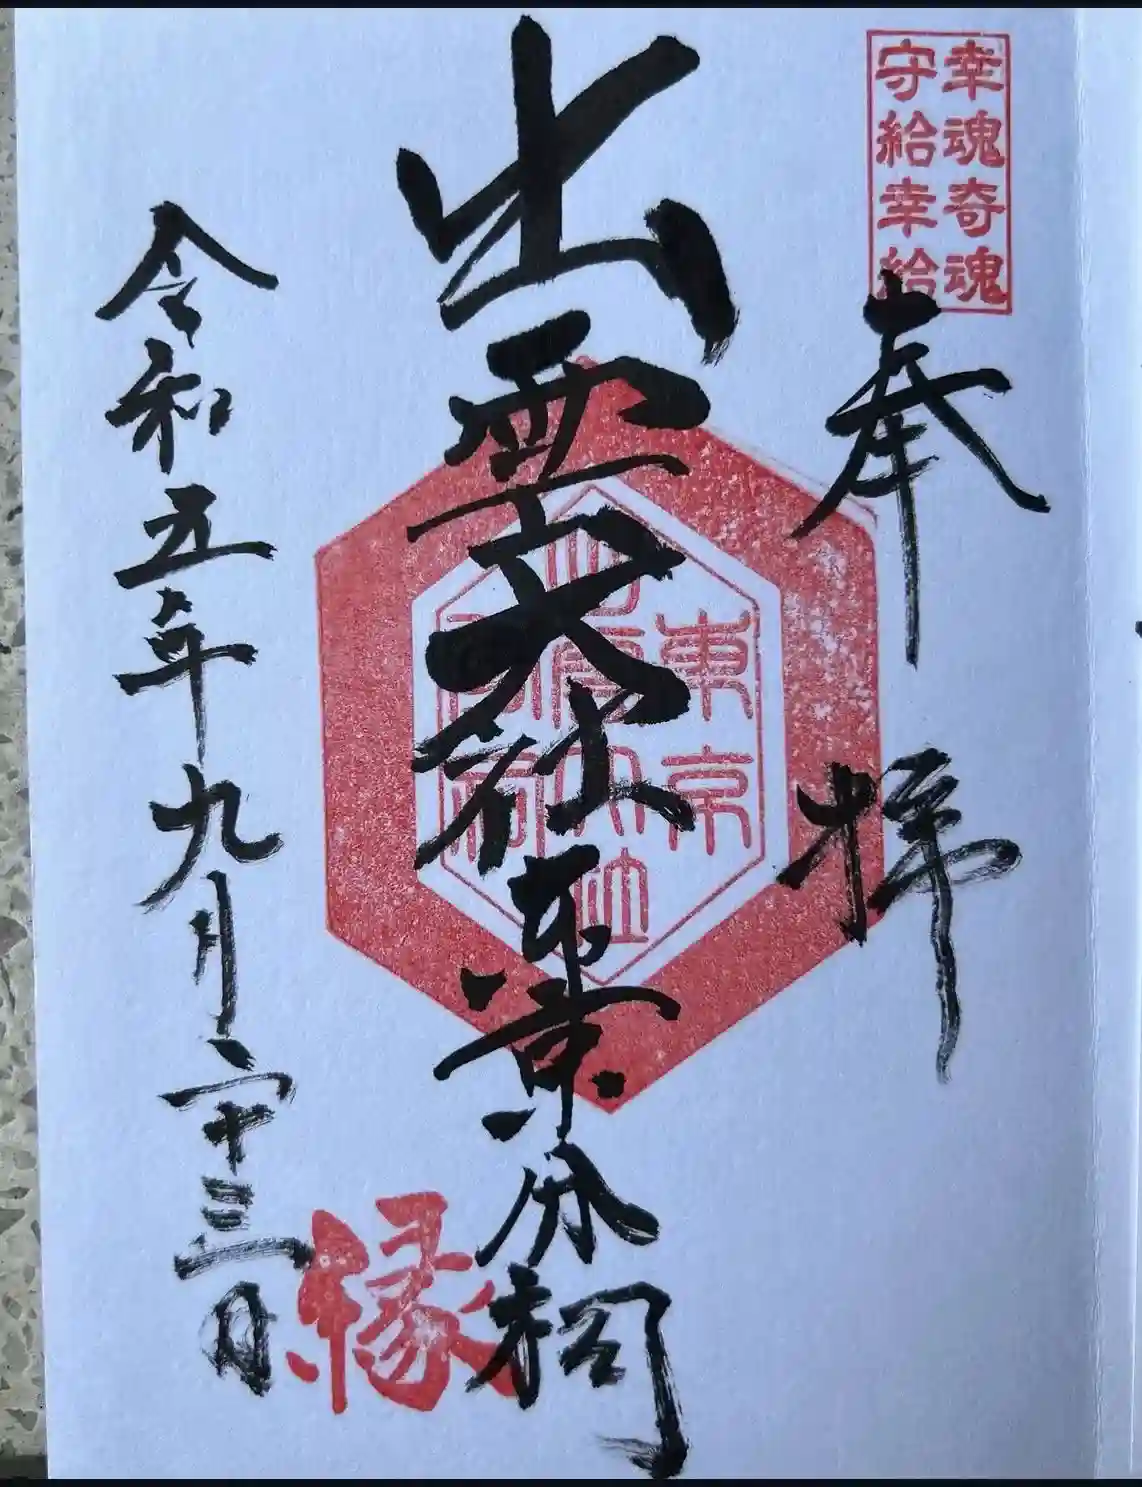 幸魂奇魂
守給幸給
奉拝
出雲大社東京分祠
東京
出雲大社
分祠
縁
令和五年九月二十三日